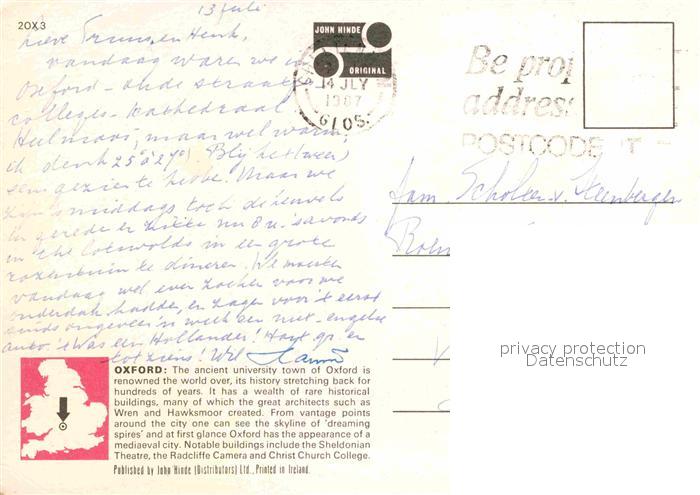 2OX3
13 juli
Lieve Truus en Henk,
vandaag waren we in
Oxford - oude straatjes
colleges - kathedraal
Heel mooi, maar wel warm,
ik denk 25° à 27°). Blij het (weer)
eens gezien te hebben. Maar we
zijn 's middags toch de heuvels
in gereden en zitten nu 8 u. 's avonds
in the Cotswolds in een grote
rozentuin te dineren. We moesten
vandaag wel even zoeken voor we
onderdak hadden, en zagen voor 't eerst
sinds ongeveer 'n week een niet-engelse
auto. 't Was een Hollander! Hoyt gr. en
tot ziens! Wil
JOHN HINDE
ORIGINAL
14 JLY
1987
GLOS
Be prop
address
POSTCODE IT
fam. Scholten v. Steenbergen
privacy protection
Datenschutz
OXFORD: The ancient university town of Oxford is
renowned the world over, its history stretching back for
hundreds of years. It has a wealth of rare historical
buildings, many of which the great architects such as
Wren and Hawksmoor created. From vantage points
around the city one can see the skyline of 'dreaming
spires' and at first glance Oxford has the appearance of a
mediaeval city. Notable buildings include the Sheldonian
Theatre, the Radcliffe Camera and Christ Church College.
Published by John Hinde (Distributors) Ltd., Printed in Ireland.